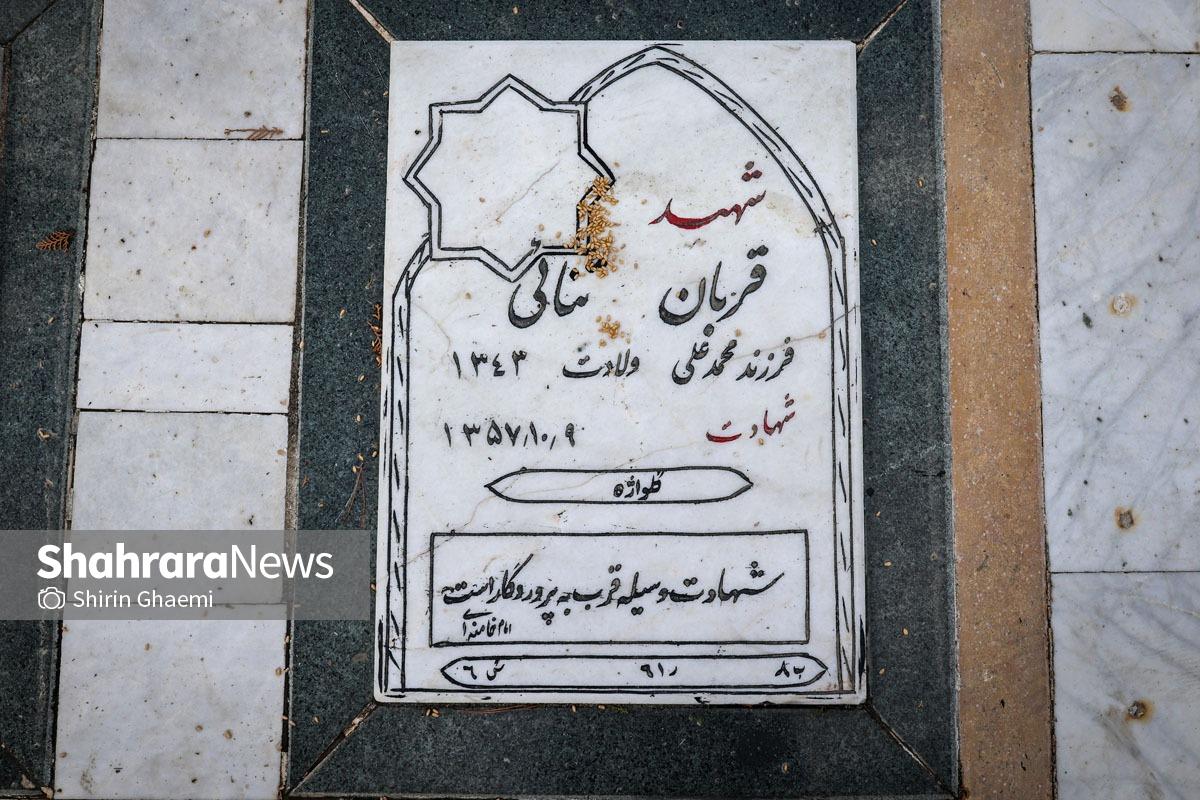 شهید
قربان ئنائی
فرزند محمدعلی ولادت ۱۳٤۳
شهادت ۱۳۵۷/۱۰/۹
گلواژه
شهادت وسیله قرب به پروردگار است
امام خامنه‌ای
ب ۸۸ ر ۹۱ ش ٦
ShahraraNews
Shirin Ghaemi